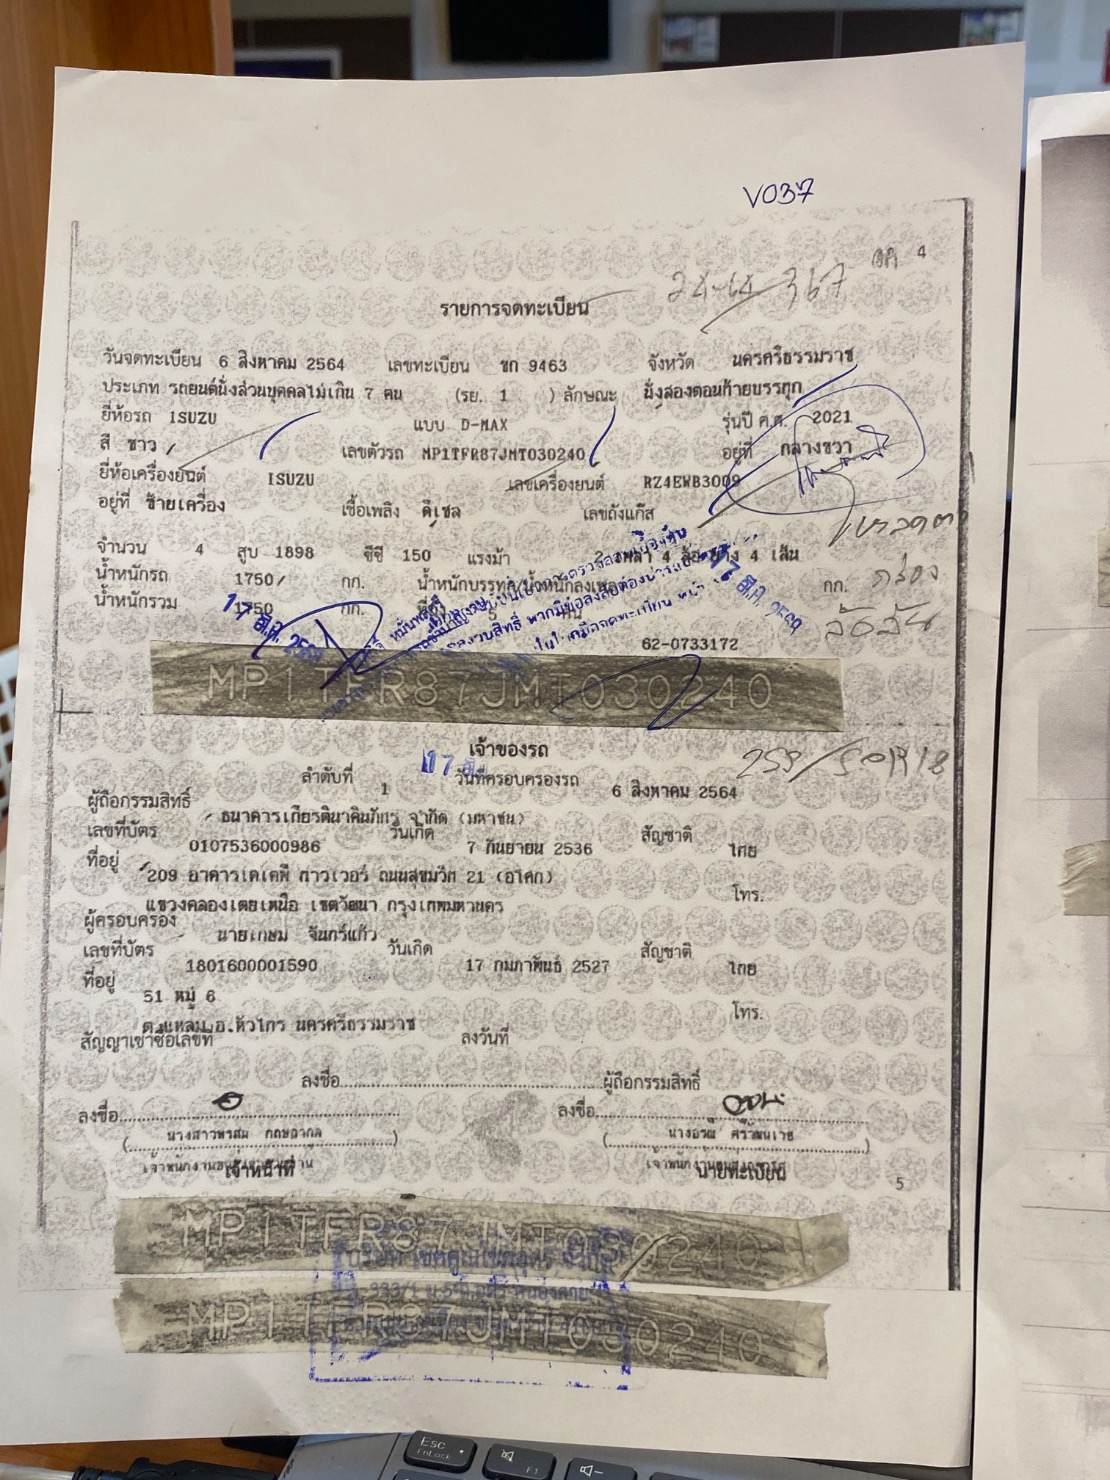 V037
4
รายการจดทะเบียน
วันจดทะเบียน 6 สิงหาคม 2564 เลขทะเบียน ขก 9463 จังหวัด นครศรีธรรมราช
ประเภท รถยนต์นั่งส่วนบุคคลไม่เกิน 7 คน (รย. 1 ) ลักษณะ นั่งสองตอนท้ายบรรทุก
ยี่ห้อรถ ISUZU แบบ D-MAX รุ่นปี ค.ศ. 2021
สี ขาว เลขตัวรถ MP1TFR87JMT030240 อยู่ที่ กลางขวา
ยี่ห้อเครื่องยนต์ ISUZU เลขเครื่องยนต์ RZ4EWB3009
อยู่ที่ ซ้ายเครื่อง เชื้อเพลิง ดีเซล เลขถังแก๊ส
จำนวน 4 สูบ 1898 ซีซี 150 แรงม้า 2 เพลา 4 ล้อ ยาง 4 เส้น
น้ำหนักรถ 1750 กก. น้ำหนักบรรทุก/น้ำหนักลงเพลา กก.
น้ำหนักรวม 1750 กก. ที่นั่ง 5 คน
62-0733172
MP1TFR87JMT030240
เจ้าของรถ
ลำดับที่ 1 วันที่ครอบครองรถ 6 สิงหาคม 2564
ผู้ถือกรรมสิทธิ์ ธนาคารเกียรตินาคินภัทร จำกัด (มหาชน)
เลขที่บัตร 0107536000986 วันเกิด 7 กันยายน 2536 สัญชาติ ไทย
ที่อยู่ 209 อาคารเคเคพี ทาวเวอร์ ถนนสุขุมวิท 21 (อโศก)
โทร.
แขวงคลองเตยเหนือ เขตวัฒนา กรุงเทพมหานคร
ผู้ครอบครอง นายเกษม จันทร์แก้ว
เลขที่บัตร 1801600001590 วันเกิด 17 กุมภาพันธ์ 2527 สัญชาติ ไทย
ที่อยู่ 51 หมู่ 6
โทร.
ต.แหลม อ.หัวไทร นครศรีธรรมราช
สัญญาเช่าซื้อเลขที่ ลงวันที่
ลงชื่อ ผู้ถือกรรมสิทธิ์
ลงชื่อ ลงชื่อ
เจ้าหน้าที่ นายทะเบียน
5
MP1TFR87JMT030240
MP1TFR87JMT030240
Esc
FnLock
F1